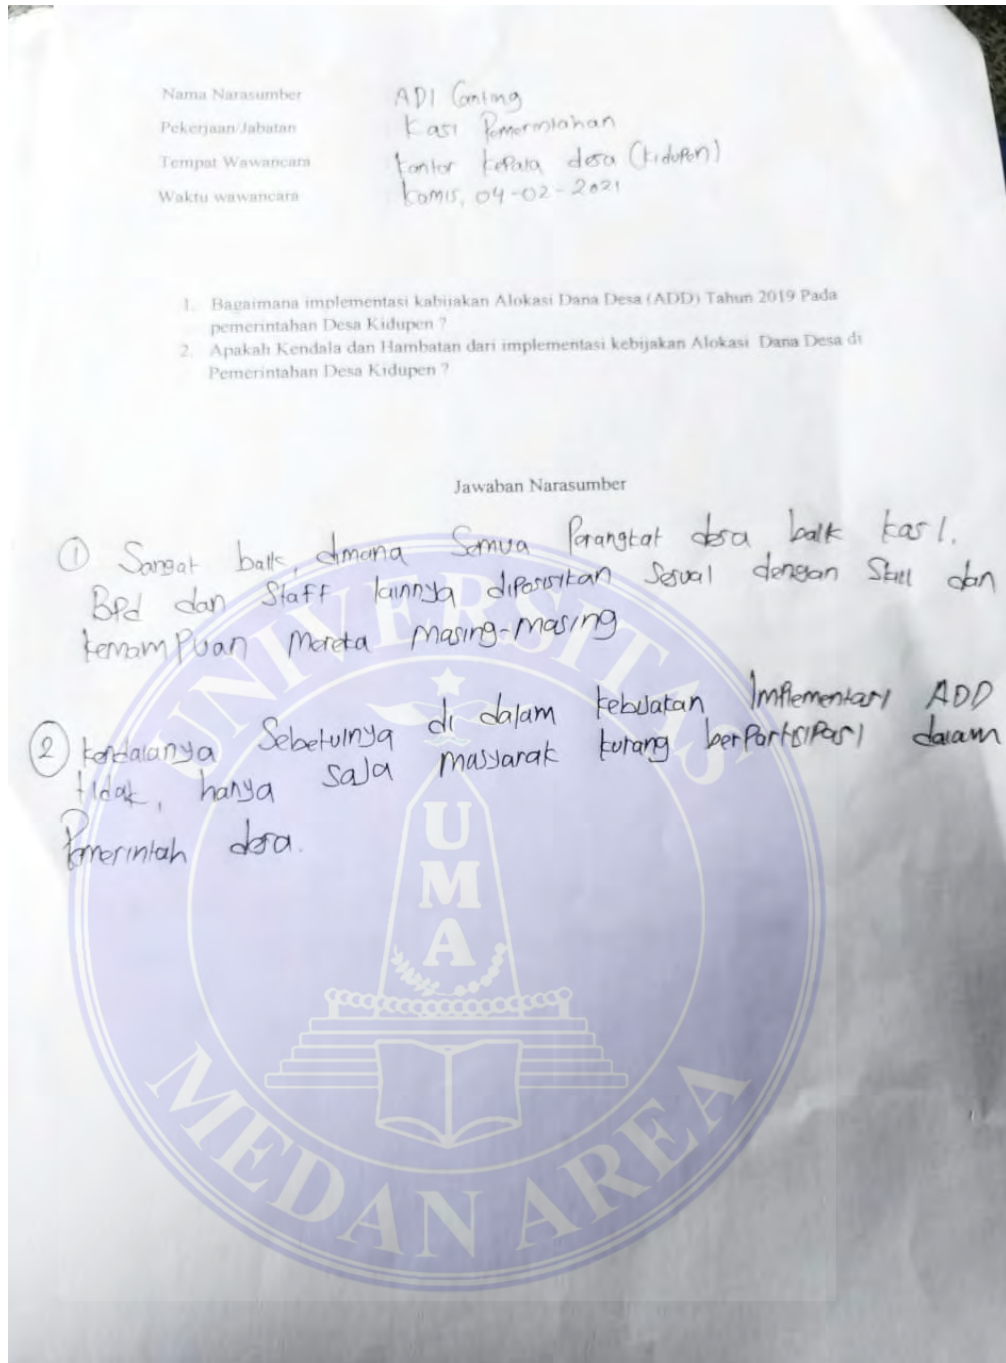 Nama Narasumber ADI Ganting
Pekerjaan/Jabatan Kasi Pemerintahan
Tempat Wawancara kantor kepala desa (kidupen)
Waktu wawancara kamis, 04-02-2021
1. Bagaimana implementasi kabijakan Alokasi Dana Desa (ADD) Tahun 2019 Pada
pemerintahan Desa Kidupen ?
2. Apakah Kendala dan Hambatan dari implementasi kebijakan Alokasi Dana Desa di
Pemerintahan Desa Kidupen ?
Jawaban Narasumber
① Sangat baik, dimana Semua Perangkat desa baik kasi,
BPd dan Staff lainnya diposisikan Sesuai dengan Skill dan
kemampuan Mereka Masing-masing
② kendalanya Sebetulnya di dalam kebijakan Implementasi ADD
tidak, hanya saja masyarak kurang berpartisipasi dalam
Pemerintah desa.
UNIVERSITAS
UMA
MEDAN AREA